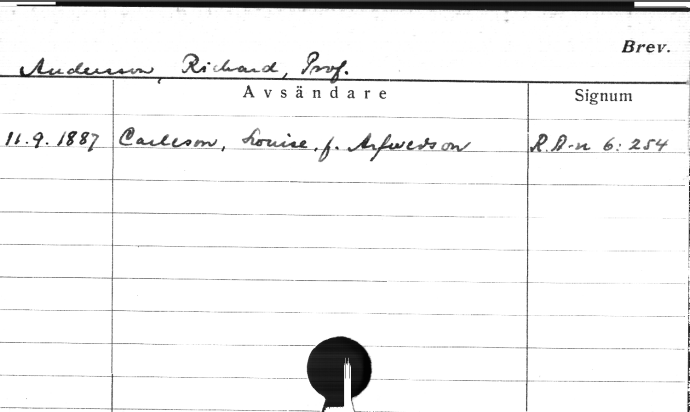 Brev.
Andersson, Richard, Prof.
Avsändare Signum
11.9.1887 Carlsson, Louise, f. Arfwedson R.A-n 6: 254